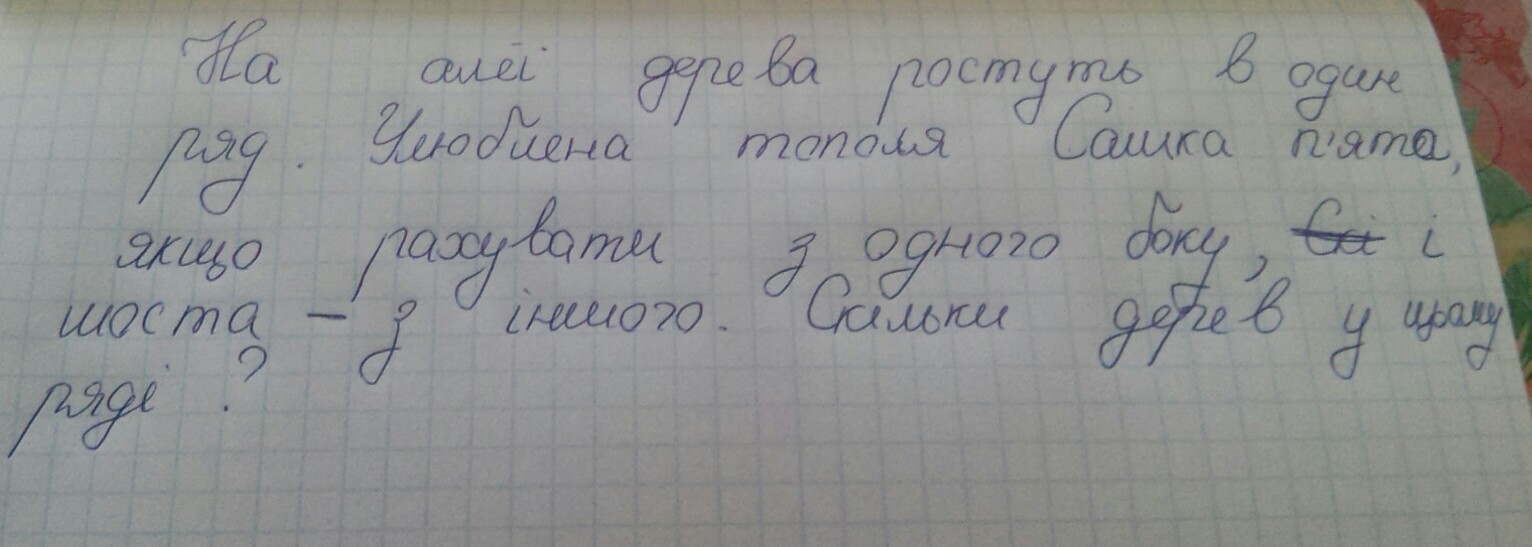 На алеї дерева ростуть в один
ряд. Улюблена тополя Сашка п'ята,
якщо рахувати з одного боку, і
шоста – з іншого. Скільки дерев у цьому
ряді ?